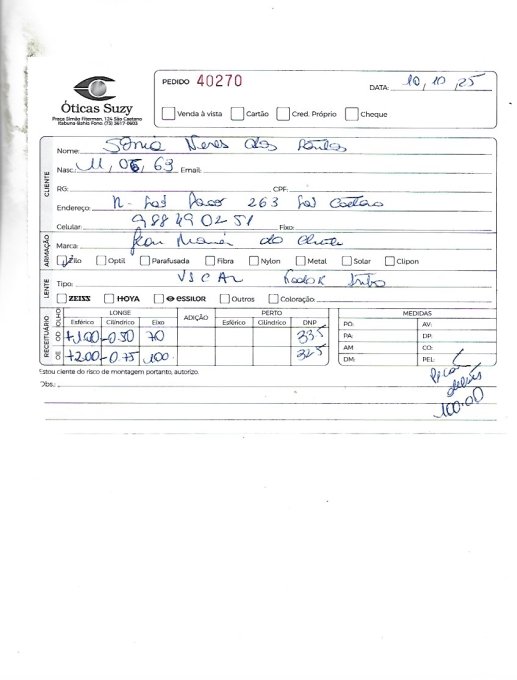 PEDIDO 40270
DATA: 10, 10, 25
Óticas Suzy
Praça Simão Fiterman, 124 São Caetano
Itabuna Bahia Fone: (73) 3617-0603
Venda à vista Cartão Cred. Próprio Cheque
CLIENTE
Nome: Sônia Neres dos Santos
Nasc.: 11, 05, 69 Email:
RG: CPF:
Endereço: 263 São Caetano
Celular: 988490251 Fixo:
ARMAÇÃO
Marca: do cliente
Zilo Optil Parafusada Fibra Nylon Metal Solar Clipon
LENTE
Tipo: VSCAL
ZEISS HOYA ESSILOR Outros Coloração:
RECEITUÁRIO
OLHO LONGE ADIÇÃO PERTO MEDIDAS
Esférico Cilíndrico Eixo Esférico Cilíndrico DNP
OD +1.00 -0.50 70 33,5
OE +2.00 -0.75 100 32,5
PO: AV:
PA: DP:
AM CO:
DM: PEL:
Estou ciente do risco de montagem portanto, autorizo.
Obs.:
100.00